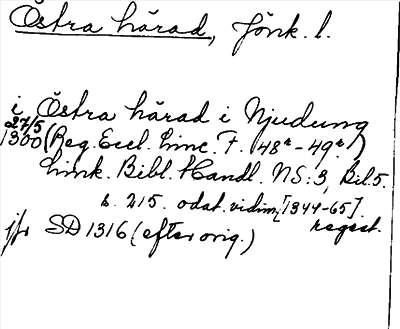 Östra härad, Jönk. l.
i Östra härad i Njudung
27/5
1300 (Reg. Eccl. Linc. F. 48r - 49r)
Link. Bibl. Handl. NS. 3, Bil. 5.
s. 215. odat. vidim. [1344-65].
regest.
jfr SD 1316 (efter orig.)